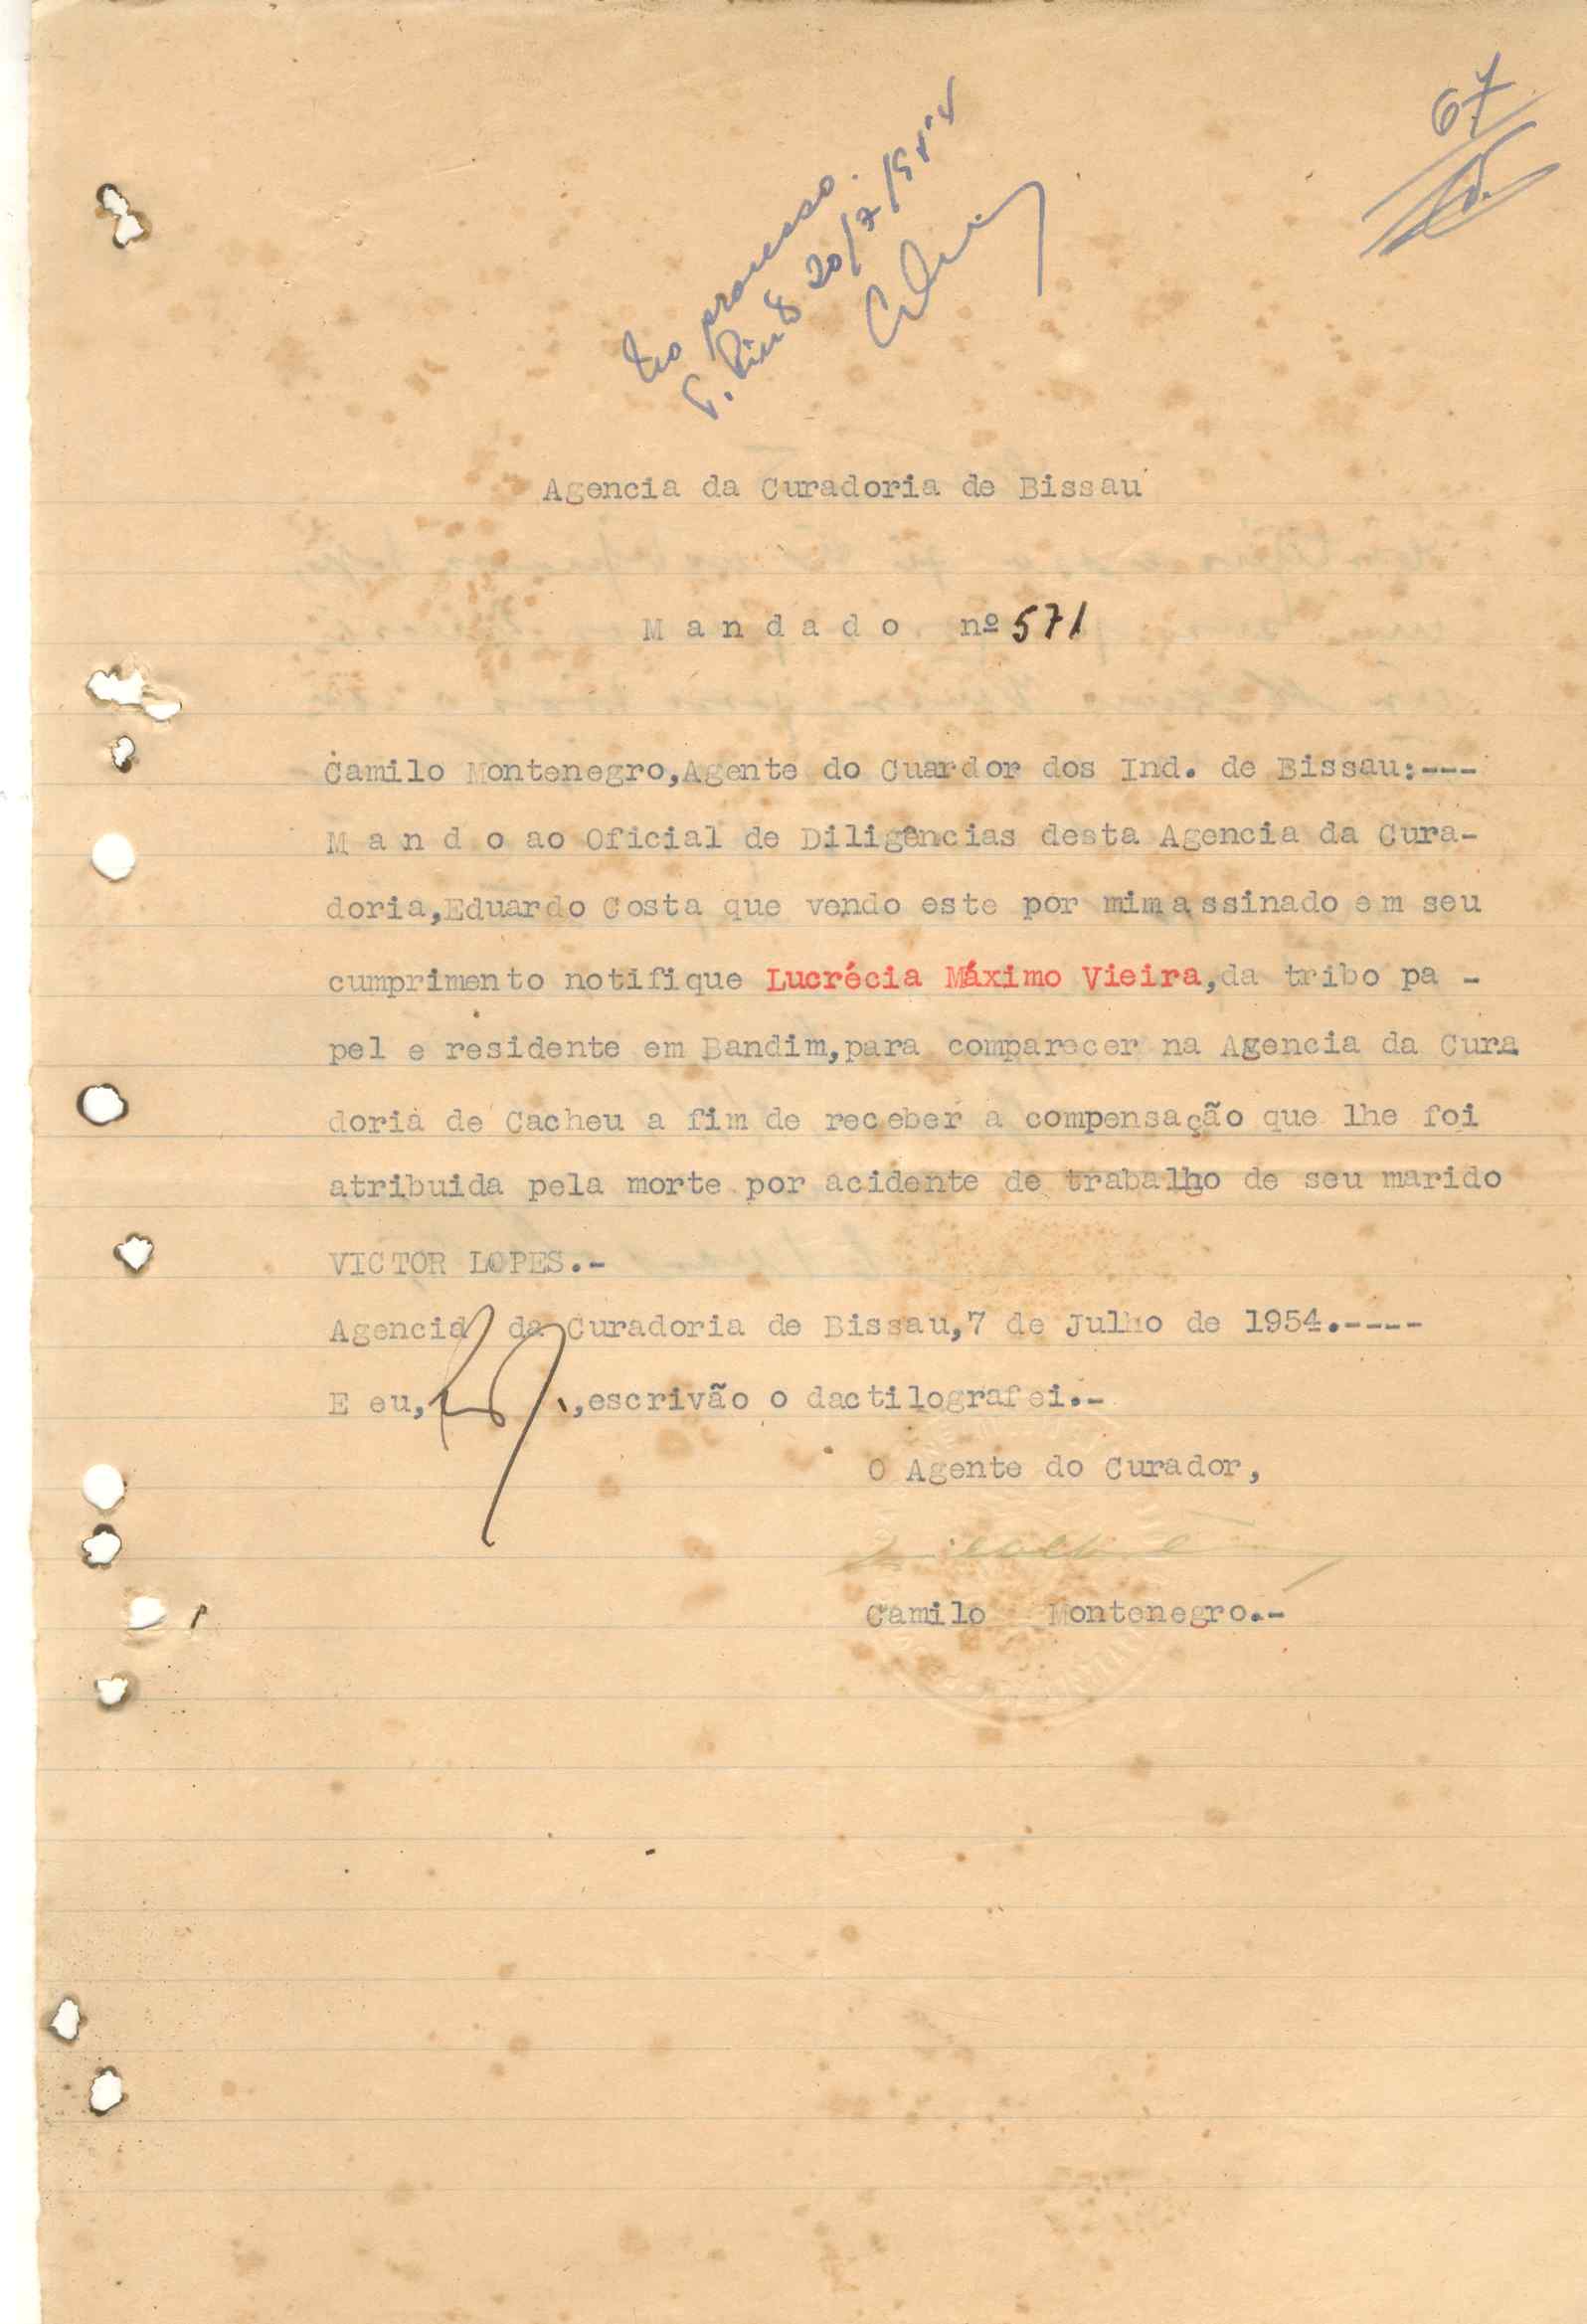 67
Ao processo.
20/7/954
Agencia da Curadoria de Bissau
M a n d a d o nº 571
Camilo Montenegro,Agente do Cuardor dos Ind. de Bissau:---
M a n d o ao Oficial de Diligências desta Agencia da Cura-
doria,Eduardo Costa que vendo este por mim assinado em seu
cumprimento notifique Lucrécia Máximo Vieira,da tribo pa -
pel e residente em Bandim,para comparecer na Agencia da Cura
doria de Cacheu a fim de receber a compensação que lhe foi
atribuida pela morte por acidente de trabalho de seu marido
VICTOR LOPES.-
Agencia da Curadoria de Bissau,7 de Julho de 1954.----
E eu, ,escrivão o dactilografei.-
O Agente do Curador,
Camilo Montenegro.-